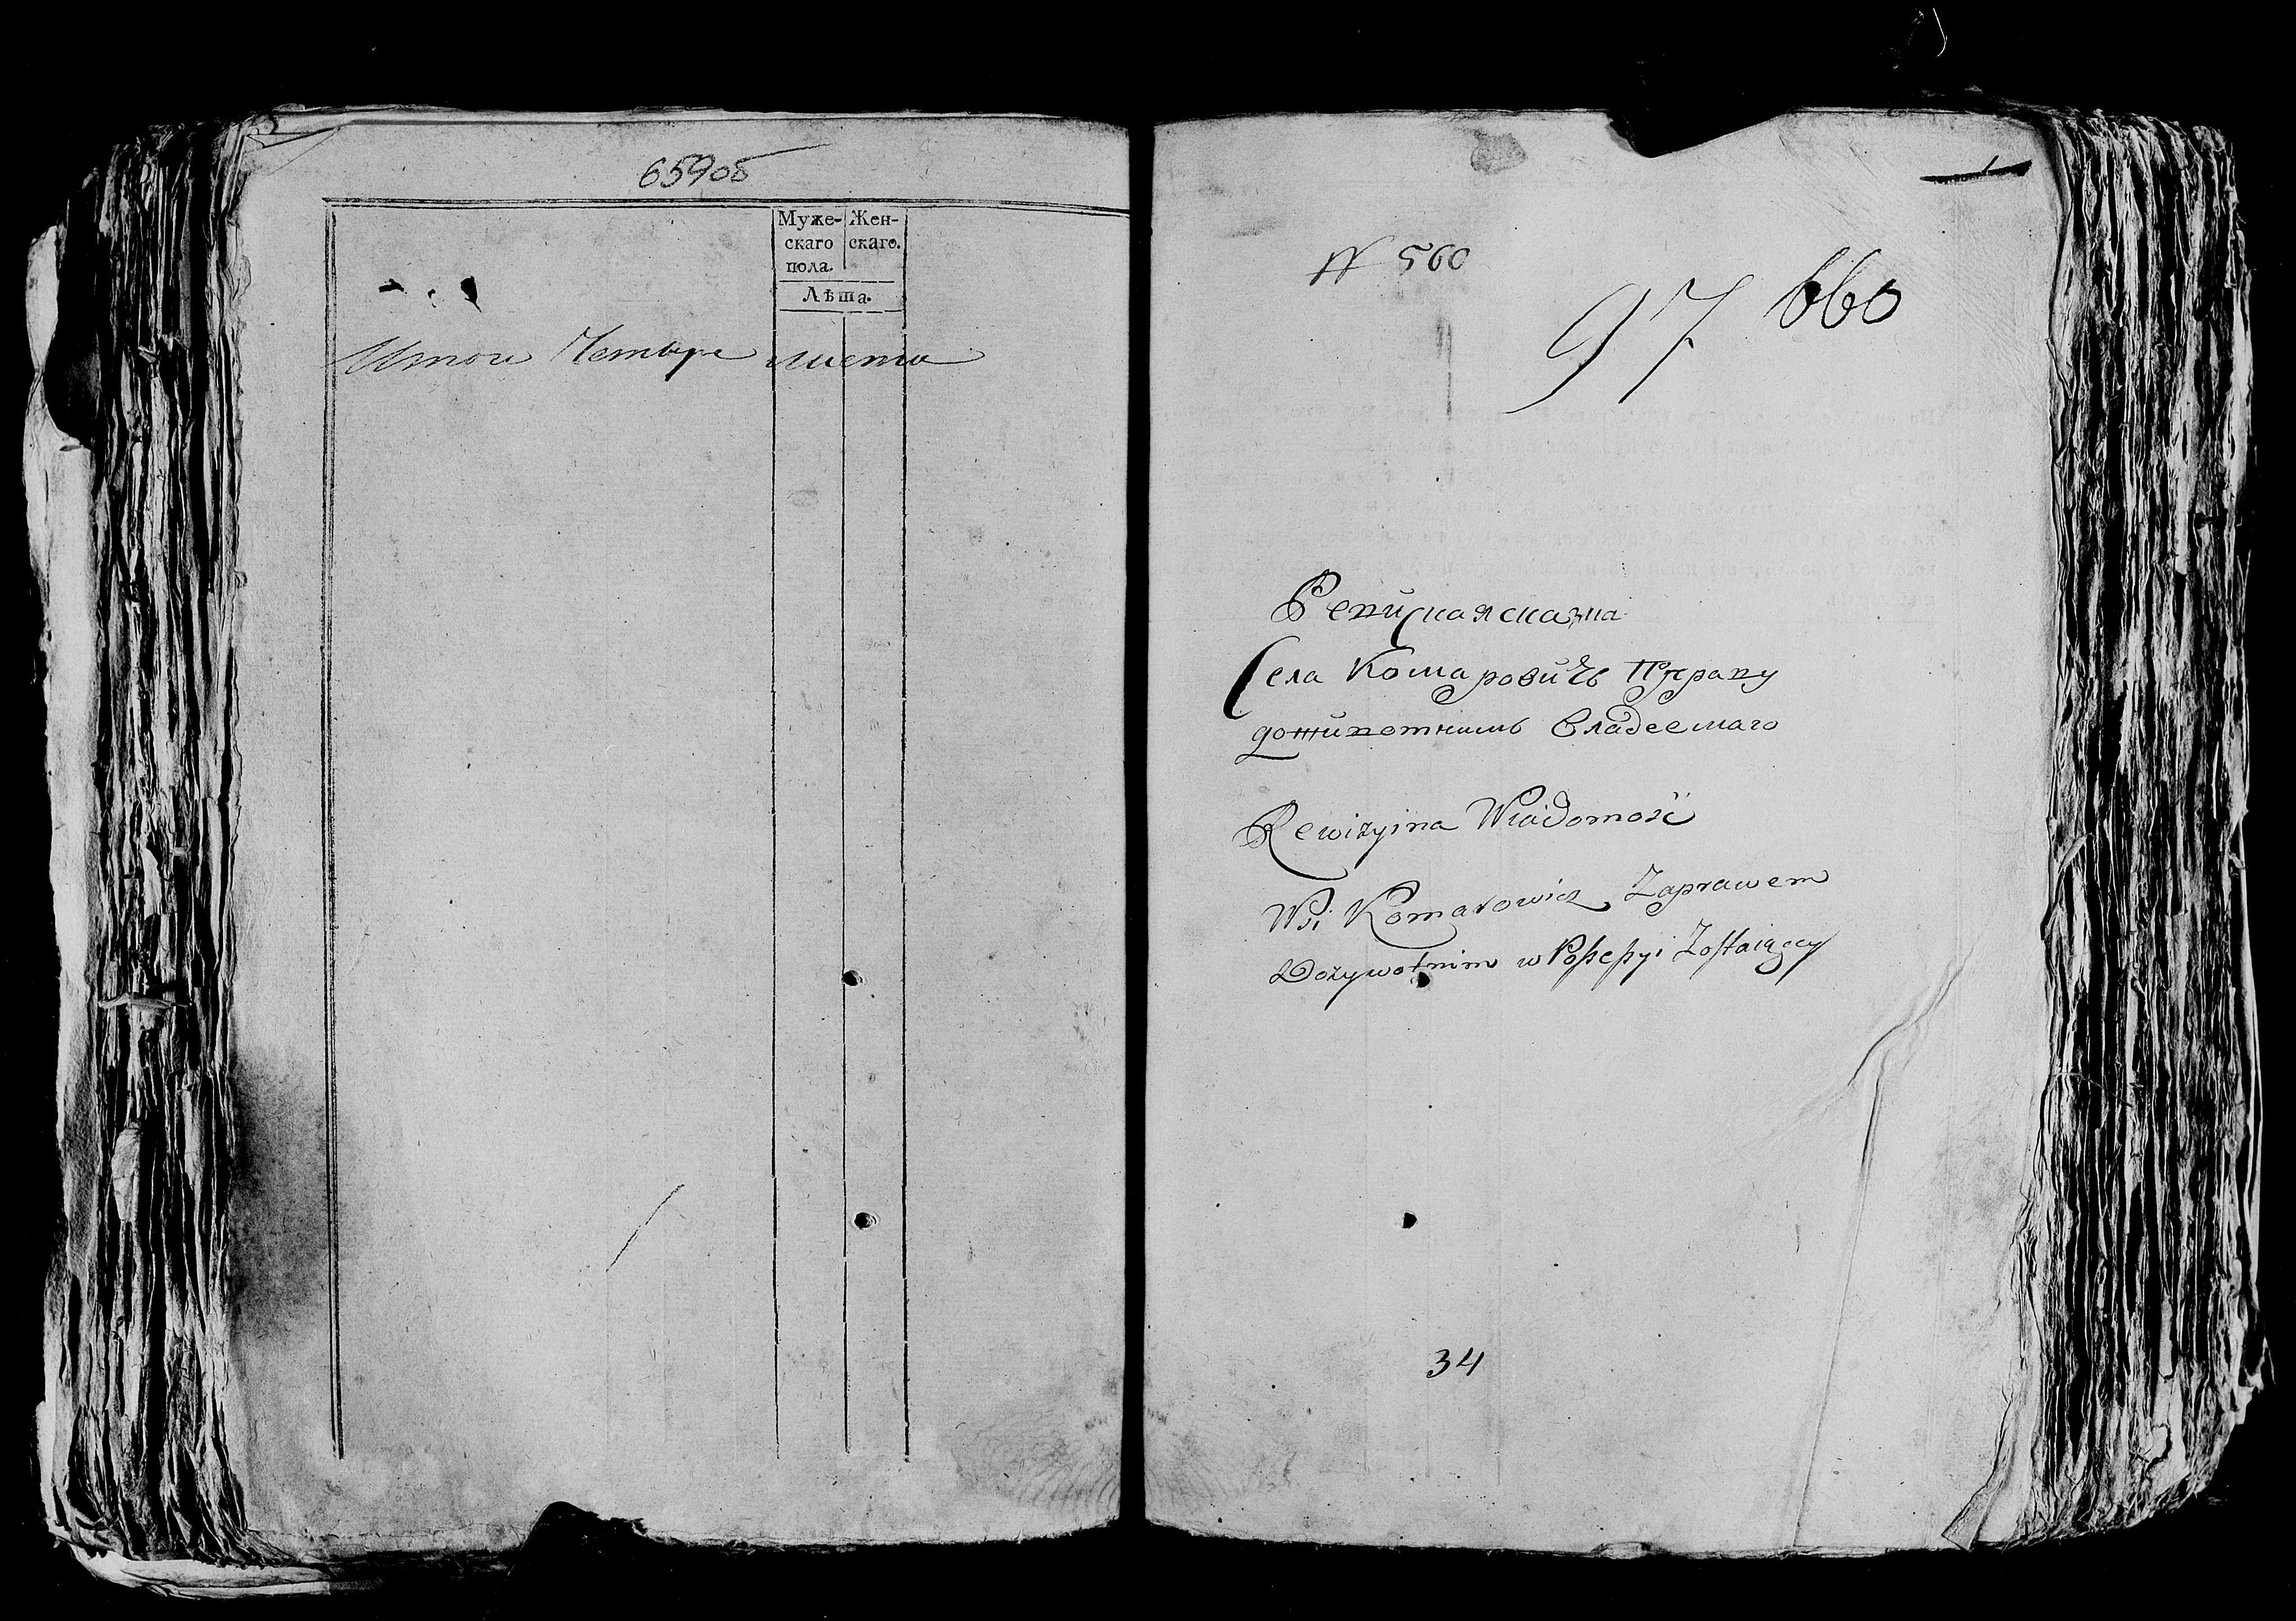 659об
Муже- Жен-
скаго скаго.
пола.
Лѣта.
Итого Четыре листа
1
N 560
97 660
Ревизкая сказка
Села Комаровичъ Пправу
доживотнимъ владеемаго
Rewizyina Wiadomość
Wsi Komarowicz Zaprawem
Dożywotnim w Possessyi Zostaiącey
34